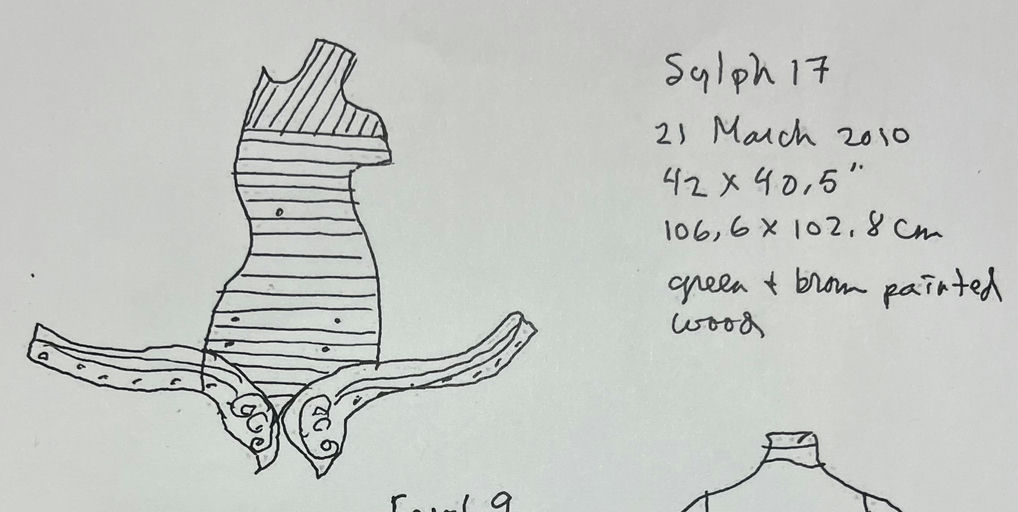 Sylph 17
21 March 2010
42 x 40,5"
106,6 x 102.8 cm
green + brown painted
wood
9